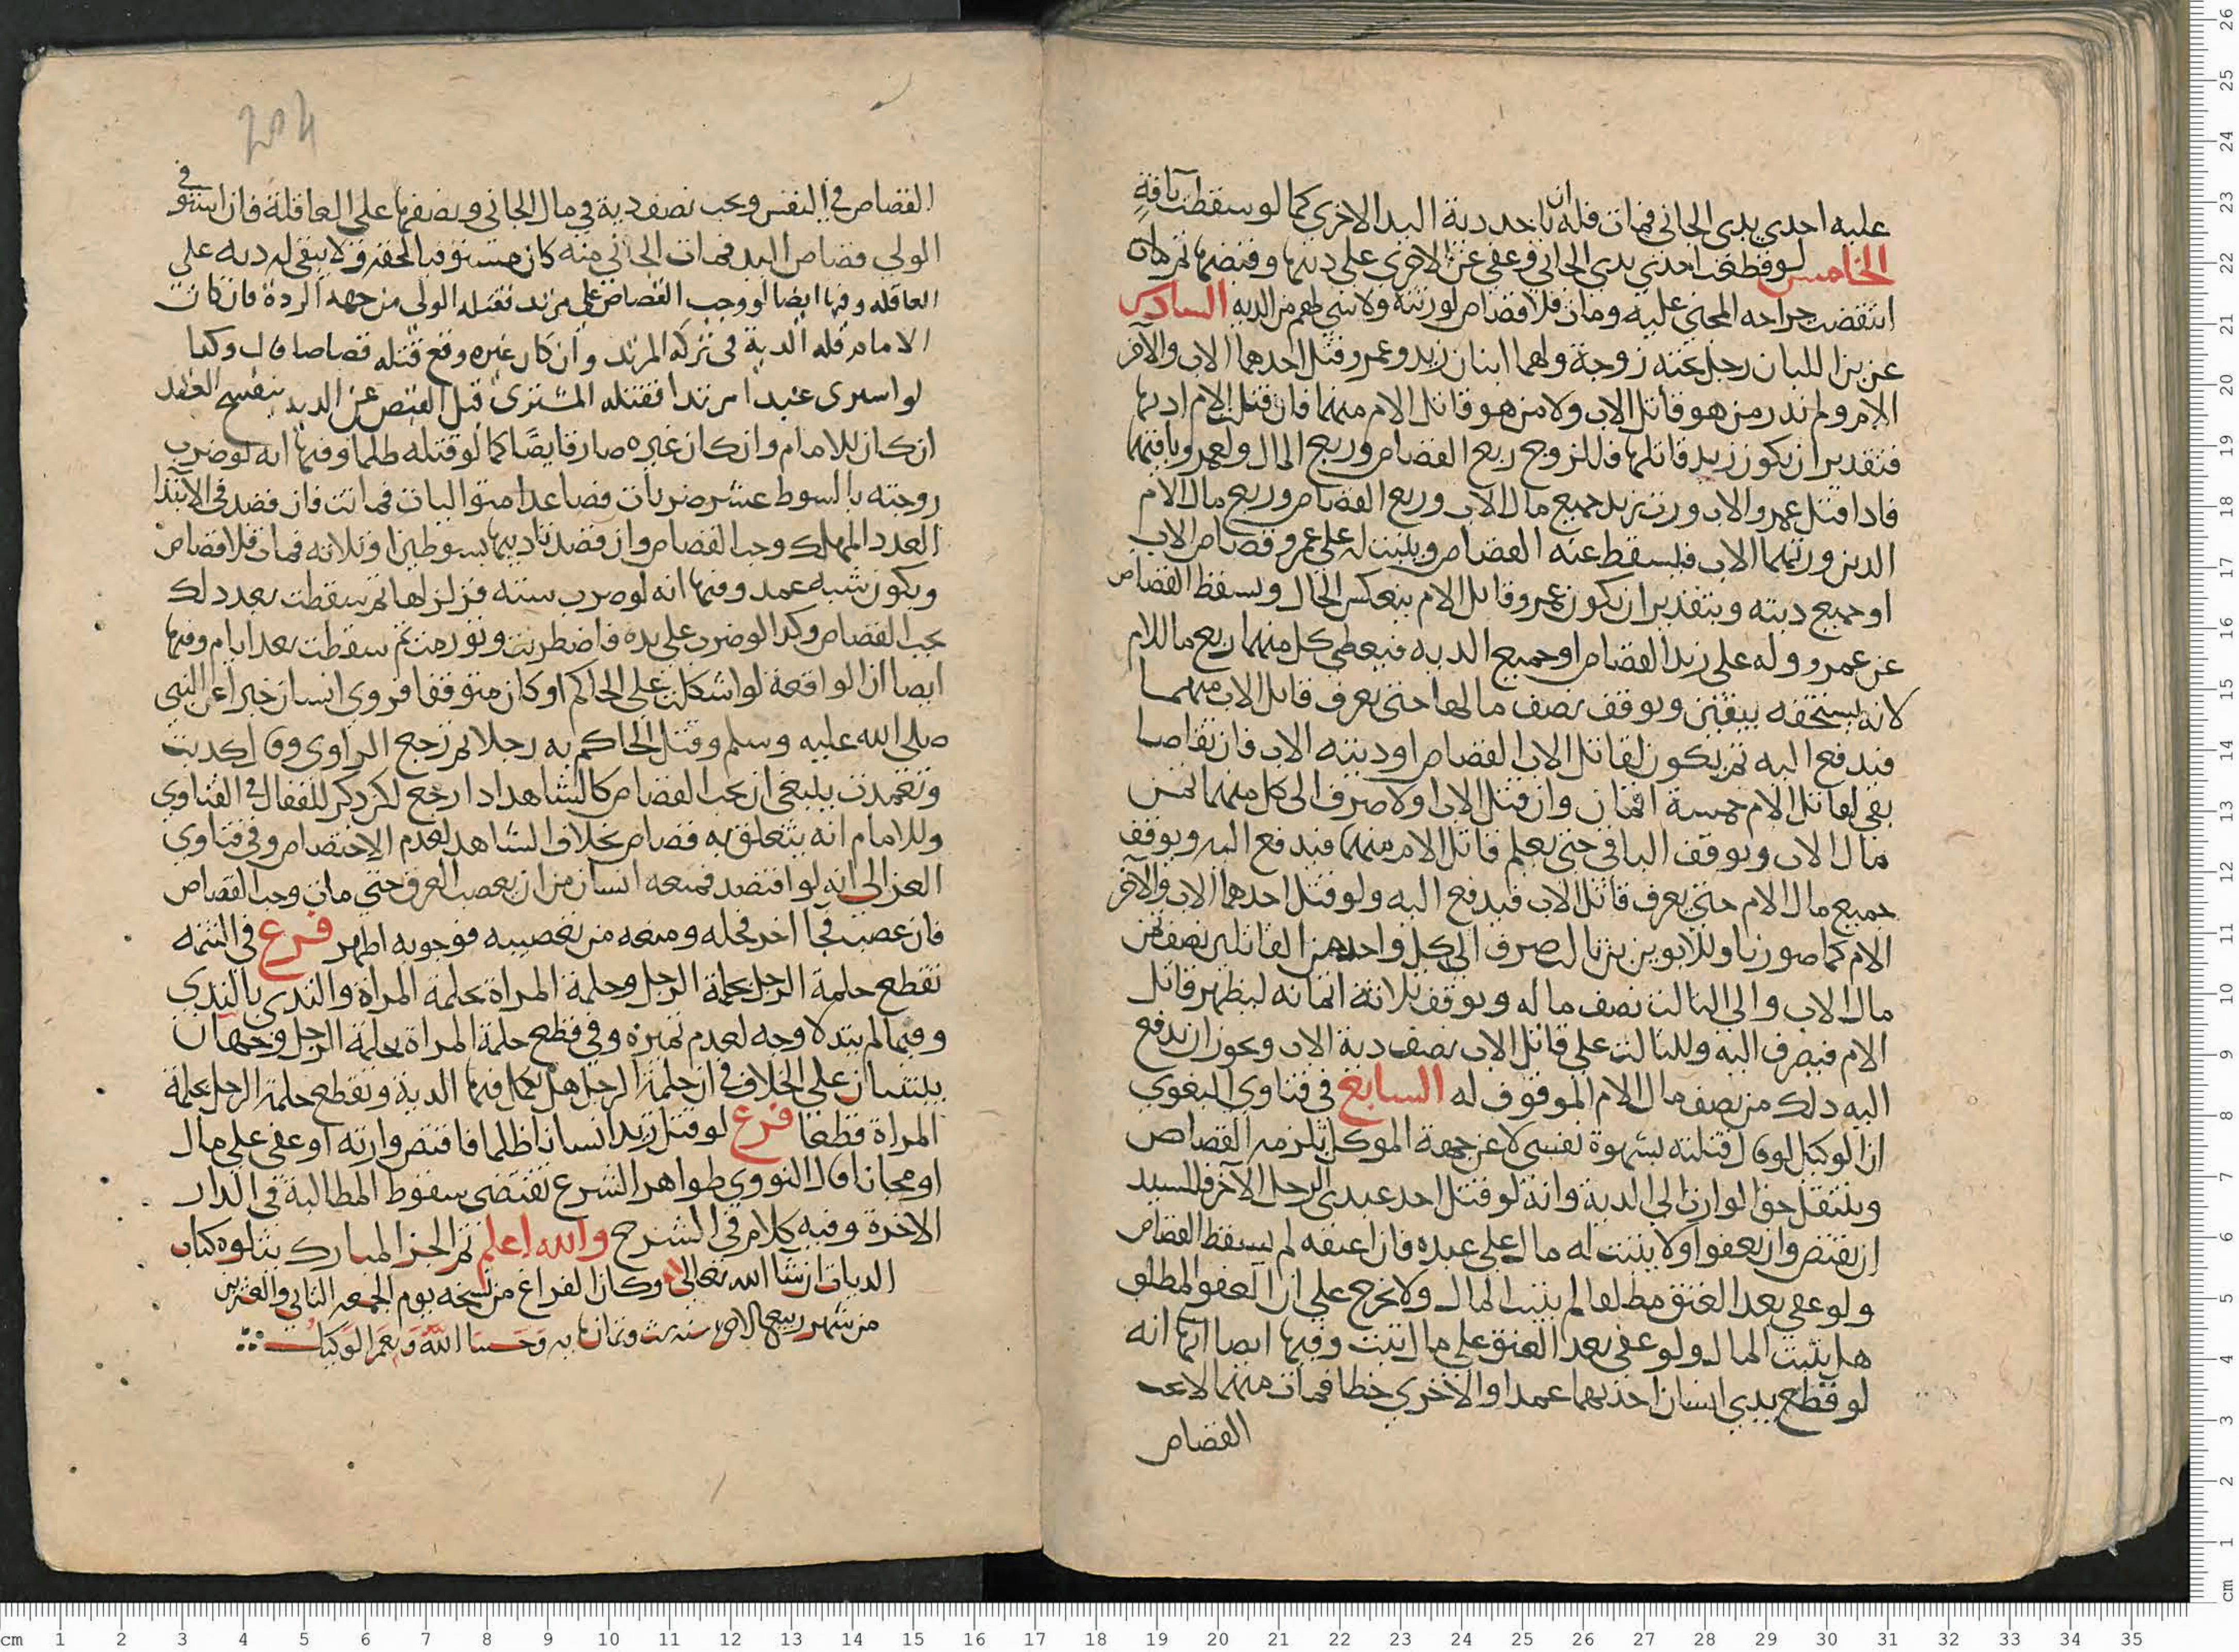 عليه احدي يدي الجاني فمات فله ان ياخذ دية اليد الاخرى كما لو سقطت بافة
الخامس لو قطعت احدي يدي الجاني وعفي عن الاخرى على ديتها وقبضها ثم
انتقضت جراحه المجني عليه ومات فلا قصاص لورثته ولا شي لهم من الديه السادس
عن بن اللبان رجل عنه زوجة ولهما ابنان زيد وعمرو قتل احدهما الاب والاخر
الام ولم ندر من هو قاتل الاب ولا من هو قاتل الام منهما فان قتل الام
فتقدير ان يكون زيد قاتلها فللزوج ربع القصاص وربع المال ولعمرو باقيهما
فاذا قتل عمرو الاب ورث زيد جميع مال الاب وربع القصاص وربع مال الام
الذين ورثهما الاب فيسقط عنه القصاص ويثبت له على عمرو قصاص الاب
او جميع ديته وبتقدير ان يكون عمرو قاتل الام ينعكس الحال ويسقط القصاص
عن عمرو وله على زيد القصاص او جميع الديه فيعطى كل منهما ربع ما للام
لانه يستحقه بيقين ويوقف نصف مالها حتى يعرف قاتل الاب منهما
فيدفع اليه ثم يكون لقاتل الاب القصاص او ديته الاب فان تقاصا
بقي لقاتل الام خمسة اثمان وان قتل الاب اولا صرف الى كل منهما ثمن
مال الاب ويوقف الباقي حتى يعلم قاتل الام منهما فيدفع اليه ويوقف
جميع مال الام حتى يعرف قاتل الاب فيدفع اليه ولو قتل احدهما الاب والاخر
الام كما صورنا وللابوين بن ثالث صرف الى كل واحد من القاتلين نصف ثمن
مال الاب والى الثالث نصف ماله ويوقف ثلاثة اثمانه ليظهر قاتل
الام فيصرف اليه وللثالث على قاتل الاب نصف دية الاب ويجوز ان يدفع
اليه ذلك من نصف مال الام الموقوف له السابع في فتاوى البغوي
ان الوكيل لو قال قتلته بشهوة نفسي لا عن جهة الموكل يلزمه القصاص
وينتقل حق الوارث الى الدية وانه لو قتل احد عبدي الرجل الاخر فللسيد
ان يقتص وان يعفوا ولا يثبت له مال على عبده فان اعتقه لم يسقط القصاص
ولو عفي بعد العتق مطلقا لم يثبت المال ولا يخرج على ان العفو المطلق
هل يثبت المال ولو عفي بعد العتق على مال ثبت وفيها ايضا انه
لو قطع يدي انسان احديهما عمدا والاخرى خطا فمات منهما لا يجب
القصاص
204
القصاص في النفس ويجب نصف دية في مال الجاني ونصفها على العاقلة فان استوفى
الولي قصاص اليد فمات الجاني منه كان مستوفيا لحقه ولا يبقى له ديه على
العاقله وفيها ايضا لو وجب القصاص على مرتد فقتله الولي من جهه الردة فان كان
الامام فله الدية في تركه المرتد وان كان غيره وقع قتله قصاصا قال وكذا
لو اشترى عبدا مرتدا فقتله المشترى قبل القبض عن الرده ينفسخ العقد
ان كان للامام وان كان غيره صار قابضا كما لو قتله ظلما وفيها انه لو ضرب
زوجته بالسوط عشر ضربات فصاعدا متواليات فماتت فان قصد في الابتدا
العدد المهلك وجب القصاص وان قصد تاديبها بسوطين او ثلاثه فمات فلا قصاص
ويكون شبه عمد وفيها انه لو ضرب سنه فزلزلها ثم سقطت بعد ذلك
يجب القصاص وكذا لو ضرب على يده فاضطربت وتورمت ثم سقطت بعد ايام وفيها
ايضا ان الواقعة لو اشكلت على الحاكم او كان متوقفا فروى انسان خبرا عن النبي
صلى الله عليه وسلم وقتل الحاكم به رجلا ثم رجع الراوي وقال كذبت
وتعمدت ينبغي ان يجب القصاص كالشاهد اذا رجع لكن ذكر للقفال في الفتاوي
وللامام انه يتعلق به قصاص بخلاف الشاهد لعدم الاختصاص وفي فتاوي
الغزالي انه لو افتصد فمنعه انسان من ان يعصب العرق حتى مات وجب القصاص
فان عصب فجا اخر فحله ومنعه من تعصيبه فوجوبه اظهر فرع في التتمه
تقطع حلمة الرجل بحلمة الرجل وحلمة المراة بحلمة المراة والثدي بالثدي
وفيما لم يتد لا وجه لعدم تميزه وفي قطع حلمة المراة بحلمة الرجل وجهان
يبتنيان على الخلاف في ان حلمة الرجل هل يكمل فيها الدية وتقطع حلمة الرجل بحلمة
المراة قطعا فرع لو قتل زيد انسانا ظلما فاقتص وارثه او عفى على مال
او مجانا قال النووي ظواهر الشرع تقتضى سقوط المطالبة في الدار
الاخرة وفيه كلام في الشرح والله اعلم تم الجز المبارك يتلوه كتاب
الديات ان شا الله تعالى وكان الفراغ من نسخه يوم الجمعه الثاني والعشرين
من شهر ربيع الاخر سنه وثمانمايه وحسبنا الله ونعم الوكيل